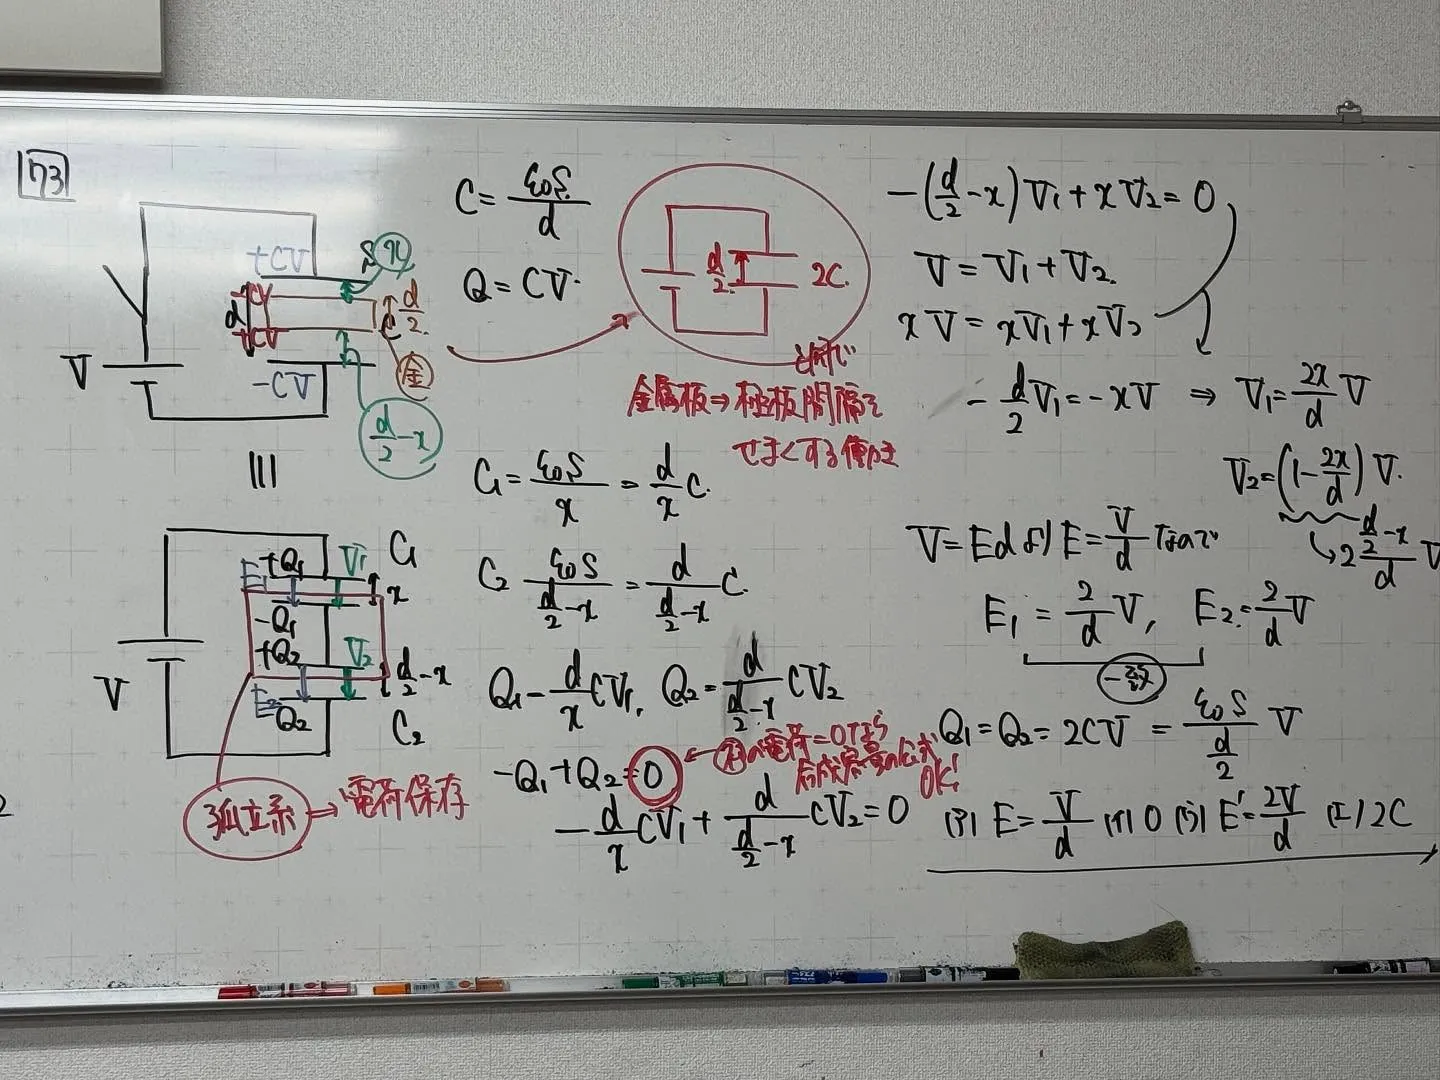 73
+CV
x
d
d/2
V
-CV
金
d/2-x
|||
+Q₁
V₁
C₁
E₁
x
-Q₁
+Q₂
V₂
V
d/2-x
E₂
-Q₂
C₂
孤立系 ⇒ 電荷保存
C=ε₀S/d
Q=CV.
d/2
2C.
金属板⇒極板間隔を
せまくする働き
C₁=ε₀S/x=d/x C.
C₂ ε₀S/(d/2-x)=d/(d/2-x) C.
Q₁-d/x CV₁, Q₂=d/(d/2-x) CV₂
-Q₁+Q₂=0
の電荷=0なら
合成容量の公式
OK!
-d/x CV₁+d/(d/2-x) CV₂=0
-(d/2-x)V₁+xV₂=0
V=V₁+V₂
xV=xV₁+xV₂
-d/2 V₁=-xV ⇒ V₁=2x/d V
V₂=(1-2x/d)V.
↳2 (d/2-x)/d V
V=EdよりE=V/dなので
E₁=2/d V, E₂=2/d V
一致
Q₁=Q₂=2CV=ε₀S/(d/2) V
(ア) E=V/d (イ) 0 (ウ) E'=2V/d (エ) 2C